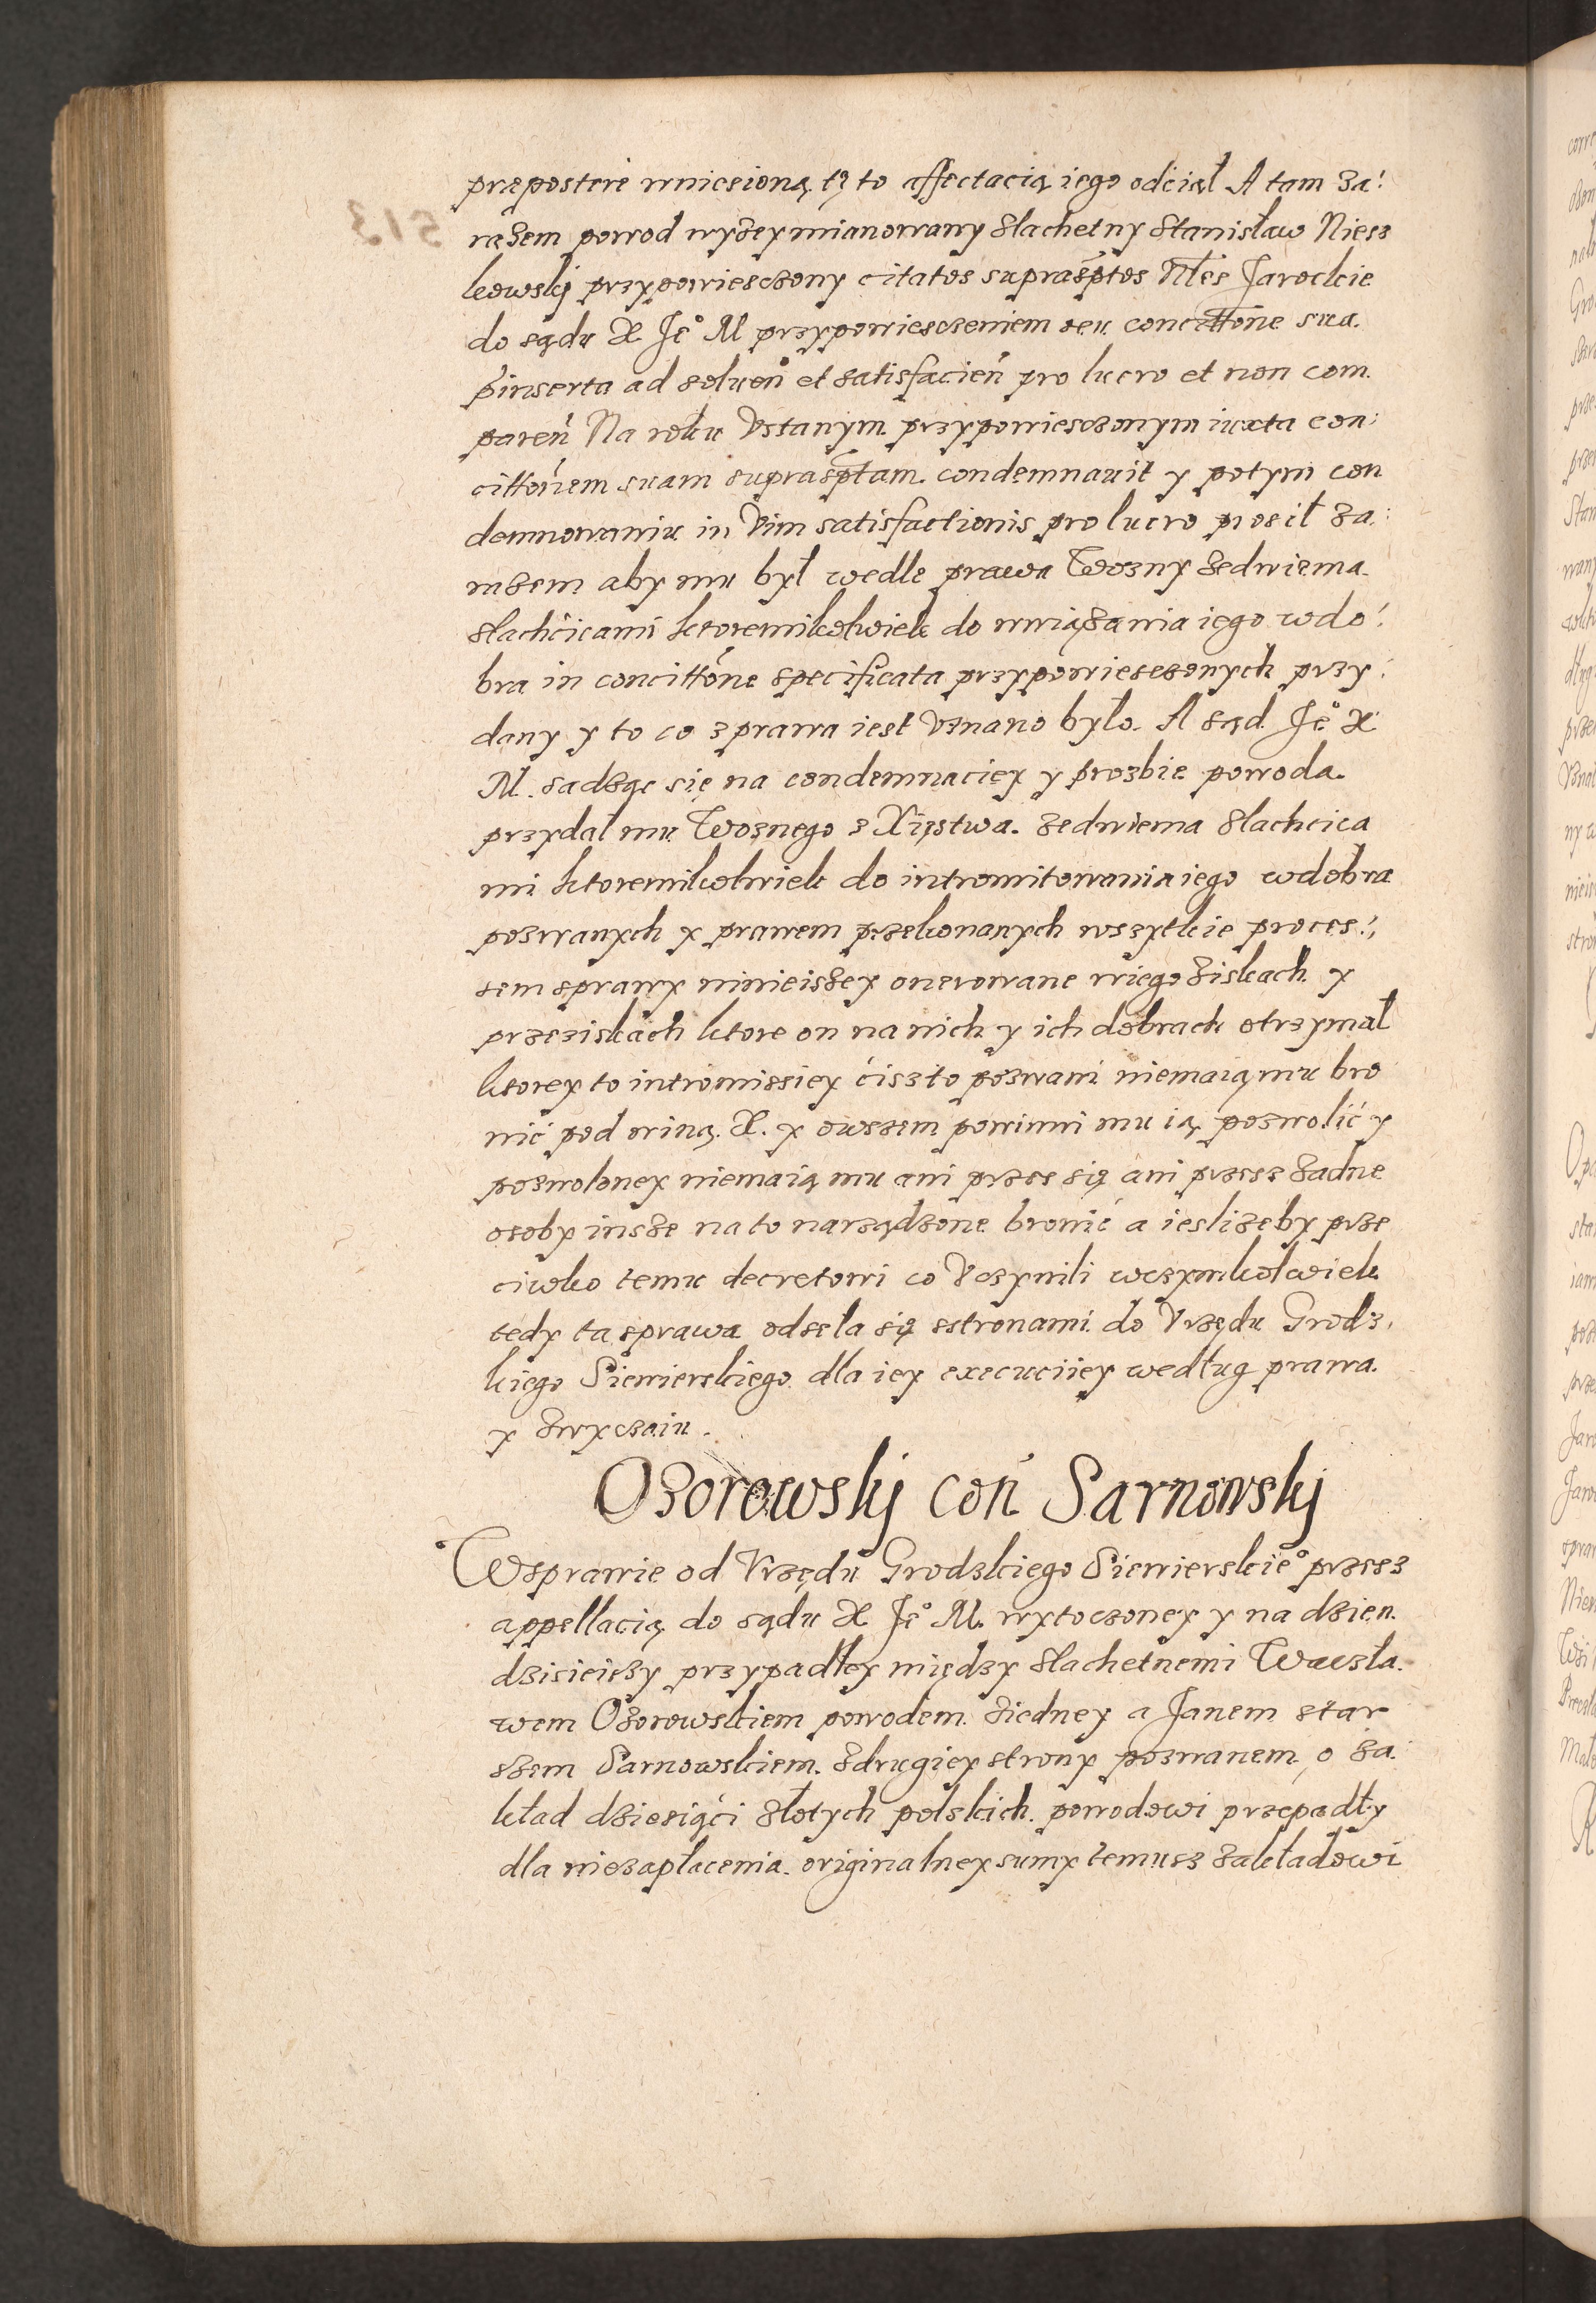 præpostere wniesioną tę to affectacią iego odciął A tam za:
razem powod wyżey mianowany Slachetny Stanisław Niesz
kowskj przypowiesczony citatos suprasptos Nles Jarockie
do sądu X. Je° M przypowiesczeniem seu concittone sua.
pinserta ad soluen et satisfacien pro lucro et non com.
paren Na roku Vstanym przypowiesczonym iuxta con:
cittonem suam suprasptam. condemnauit y potym con
demnowaniu in Vim satisfactionis pro lucro prosił za:
razem aby mu był wedle prawa Wozny zedwiema.
slachcicami ktoremikolwiek do wwiązania iego wdo:
bra in concittone specificata przypowiesczonych przy:
dany y to co z prawa iest Vznano było. A sąd Je° X
M. sadząc się na condemnaciey y prozbie powoda.
przydał mu Woznego z Xięstwa. zedwiema slachcica
mi ktoremikolwiek do intromitowania iego wdobra
pozwanych y prawem przekonanych wszytkie proces:
sem sprawy ninieiszey onerowane wiego ziskach y
przeziskach ktore on na nich y ich dobrach otrzymał
ktorey to intromissiey ciszto pozwani niemaią mu bro
nić pod winą X. y owszem powinni mu ią pozwolić y
pozwoloney niemaią mu ani przez się ani przesz żadne
osoby insze na to narządzone bronić a iesliżeby prze
ciwko temu decretowi co Vczynili wczymkolwiek
tedy ta sprawa odseła się sstronami do Vrzędu Grodz.
kiego Siewierskiego dla iey execuciiey według prawa.
y zwyczaiu.
Ozorowskj con Sarnowskj
Wsprawie od Vrzędu Grodzkiego Siewierskie° przesz
appellacią do sądu X Je° M. wytoczoney y na dzien.
dzisieiszy przypadłey między slachetnemi Wacła.
wem Ozorowskiem powodem ziedney a Janem star
szem Sarnowskiem. zdrugiey strony pozwanem o za.
kład dziesiąci złotych polskich. powodowi przepadły
dla niezapłacenia. originalney sumy temusz zakładowi
513